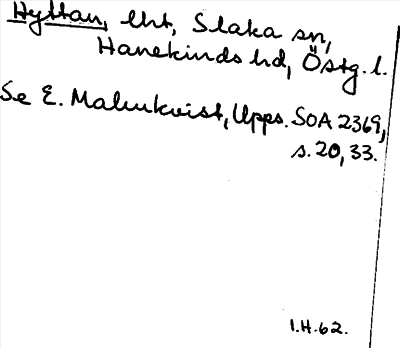 Hyttan, lht, Slaka sn,
Hanekinds hd, Östg. l.
Se E. Malmkvist, Upps. SOA 2369,
s. 20, 33.
I.H. 62.